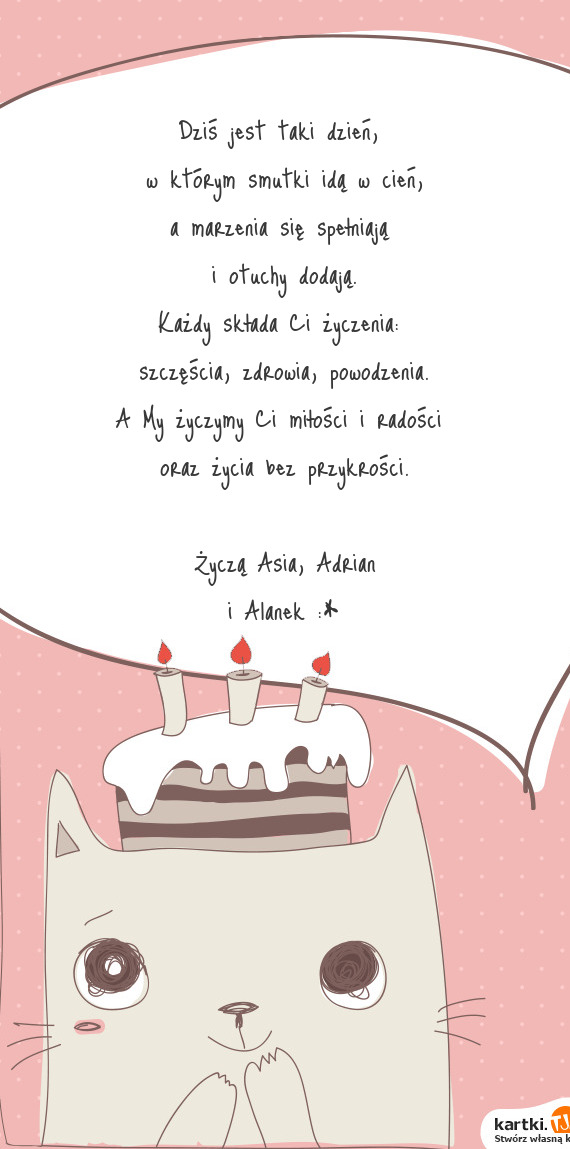 Dziś jest taki dzień,
w którym smutki idą w cień,
a marzenia się spełniają
i otuchy dodają.
Każdy składa Ci życzenia:
szczęścia, zdrowia, powodzenia.
A My życzymy Ci miłości i radości
oraz życia bez przykrości.
Życzą Asia, Adrian
i Alanek :*
kartki.TJ
Stwórz własną k